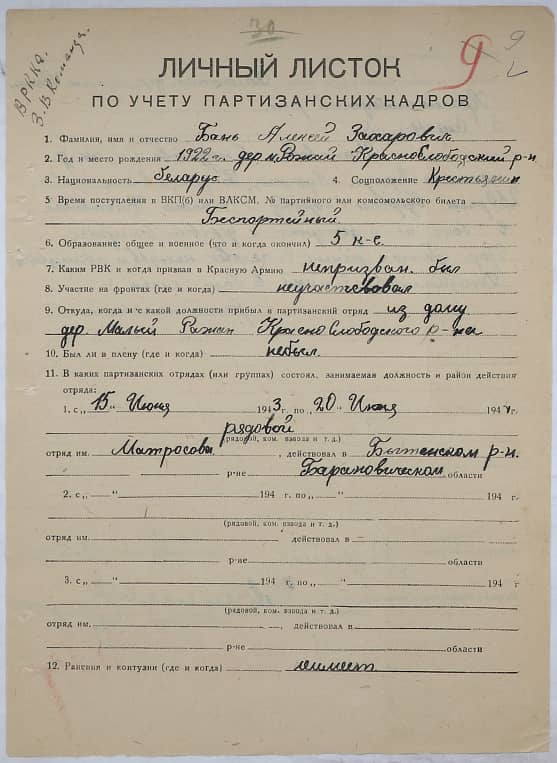 30
9 9
В РККА.
З.В Команда.
ЛИЧНЫЙ ЛИСТОК
ПО УЧЕТУ ПАРТИЗАНСКИХ КАДРОВ
1. Фамилия, имя и отчество Бань Алексей Захарович
2. Год и место рождения 1922 г. дер М Рожан Краснослободский р-н
3. Национальность беларус 4. Соцположение Крестьянин
5. Время поступления в ВКП(б) или ВЛКСМ, № партийного или комсомольского билета
Беспортейный.
6. Образование: общее и военное (что и когда окончил) 5 к-с.
7. Каким РВК и когда призван в Красную Армию непризван. был
8. Участие на фронтах (где и когда) неучаствовал
9. Откуда, когда и с какой должности прибыл в партизанский отряд из дому
дер. Малый Рожан Красно Слободского р-на
10. Был ли в плену (где и когда) небыл.
11. В каких партизанских отрядах (или группах) состоял, занимаемая должность и район действия
отряда:
1. с „15„ Июня 1943 г. по „20„ Июня 1944 г.
рядовой
(рядовой, ком. взвода и т. д.)
отряд им. Матросова, действовал в Бытенском р-н.
р-не Барановическом области
2. с „ “ 194 г. по „ “ 194 г.
(рядовой, ком. взвода и т. д.)
отряд им. действовал в
р-не области
3. с „ “ 194 г. по „ “ 194 г.
(рядовой, ком. взвода и т. д.)
отряд им. , действовал в
р-не области
12. Ранения и контузии (где и когда)